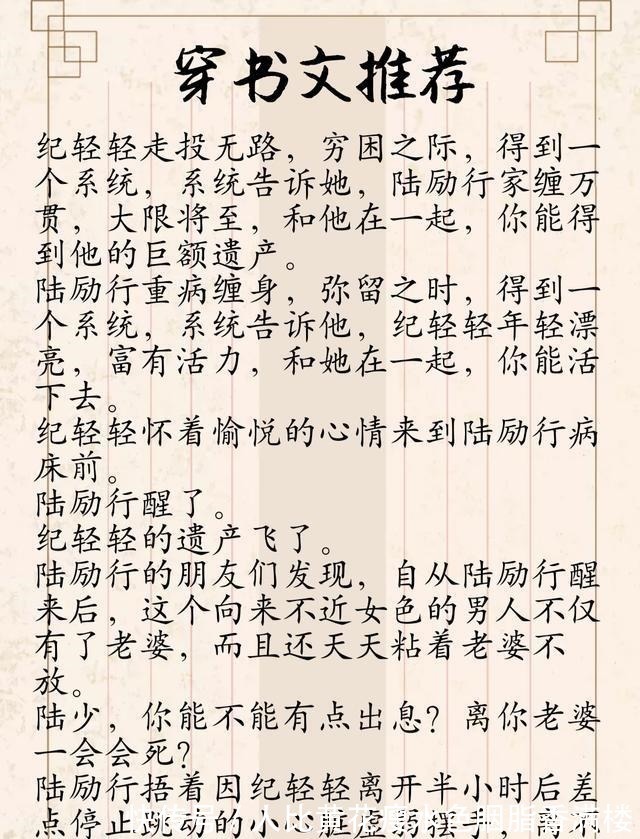 穿书文推荐
纪轻轻走投无路，穷困之际，得到一
个系统，系统告诉她，陆励行家缠万
贯，大限将至，和他在一起，你能得
到他的巨额遗产。
陆励行重病缠身，弥留之时，得到一
个系统，系统告诉他，纪轻轻年轻漂
亮，富有活力，和她在一起，你能活
下去。
纪轻轻怀着愉悦的心情来到陆励行病
床前。
陆励行醒了。
纪轻轻的遗产飞了。
陆励行的朋友们发现，自从陆励行醒
来后，这个向来不近女色的男人不仅
有了老婆，而且还天天粘着老婆不
放。
陆少，你能不能有点出息？离你老婆
一会会死？
陆励行捂着因纪轻轻离开半小时后差
点停止跳动的小